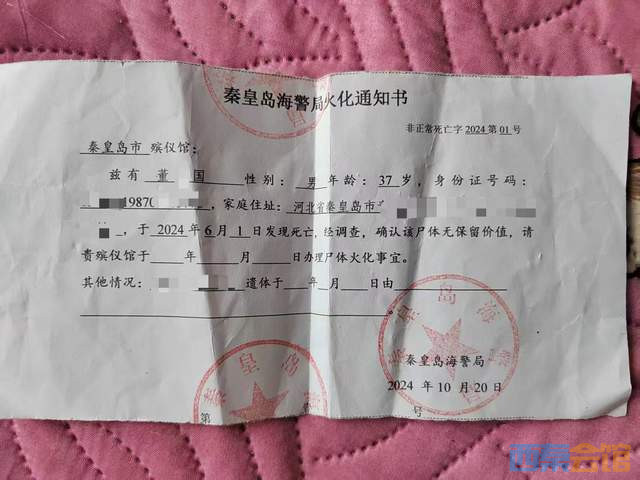 秦皇岛海警局火化通知书
非正常死亡字 2024 第 01 号
秦皇岛市 殡仪馆:
兹有 董 国 性别: 男 年龄: 37 岁, 身份证号码:
1987 , 家庭住址: 河北省秦皇岛市
, 于 2024 年 6 月 1 日发现死亡, 经调查, 确认该尸体无保留价值, 请
贵殡仪馆于 年 月 日办理尸体火化事宜。
其他情况: 遗体于 年 月 日由
。
秦皇岛海警局
2024 年 10 月 20 日
第 号
西祠会馆